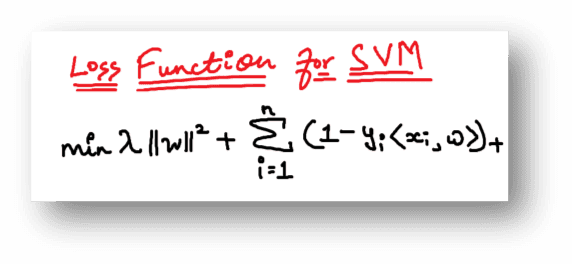 Loss Function for SVM
min λ ||w||² + Σⁿᵢ₌₁ (1 - yᵢ<xᵢ, w>)₊